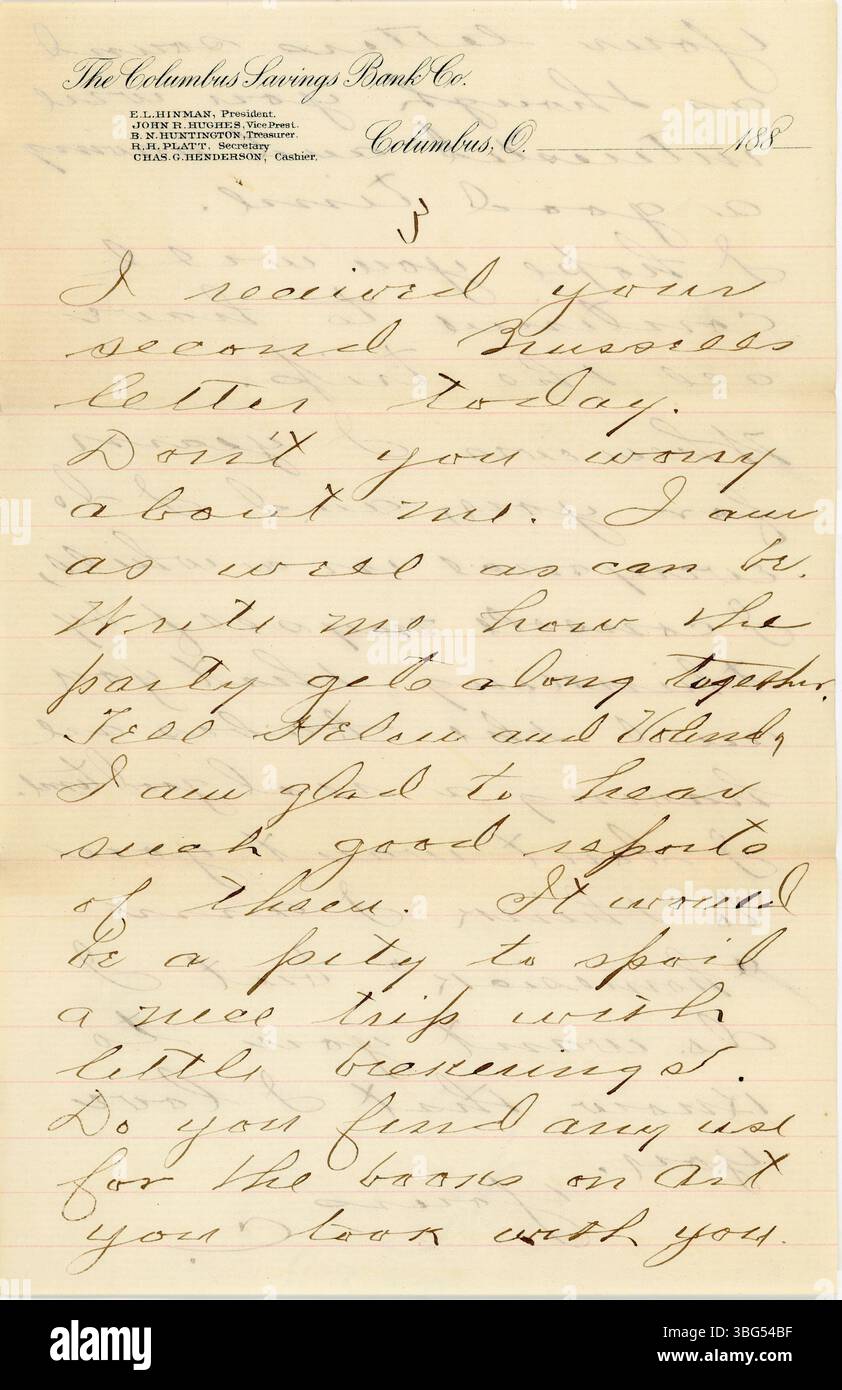 The Columbus Savings Bank Co.
E. L. HINMAN, President.
JOHN R. HUGHES, Vice Prest.
B. N. HUNTINGTON, Treasurer.
R. H. PLATT. Secretary
CHAS. G. HENDERSON, Cashier.
Columbus, O. 188
3
I received your
second Brussells
letter today.
Don't you worry
about me. I am
as well as can be.
Write me how the
party gets along together.
Tell Helen and
I am glad to hear
such good reports
of them. It would
be a pity to spoil
a nice trip with
little bickerings.
Do you find any use
for the books on art
you took with you.
alamy
Image ID: 3BG54BF
www.alamy.com